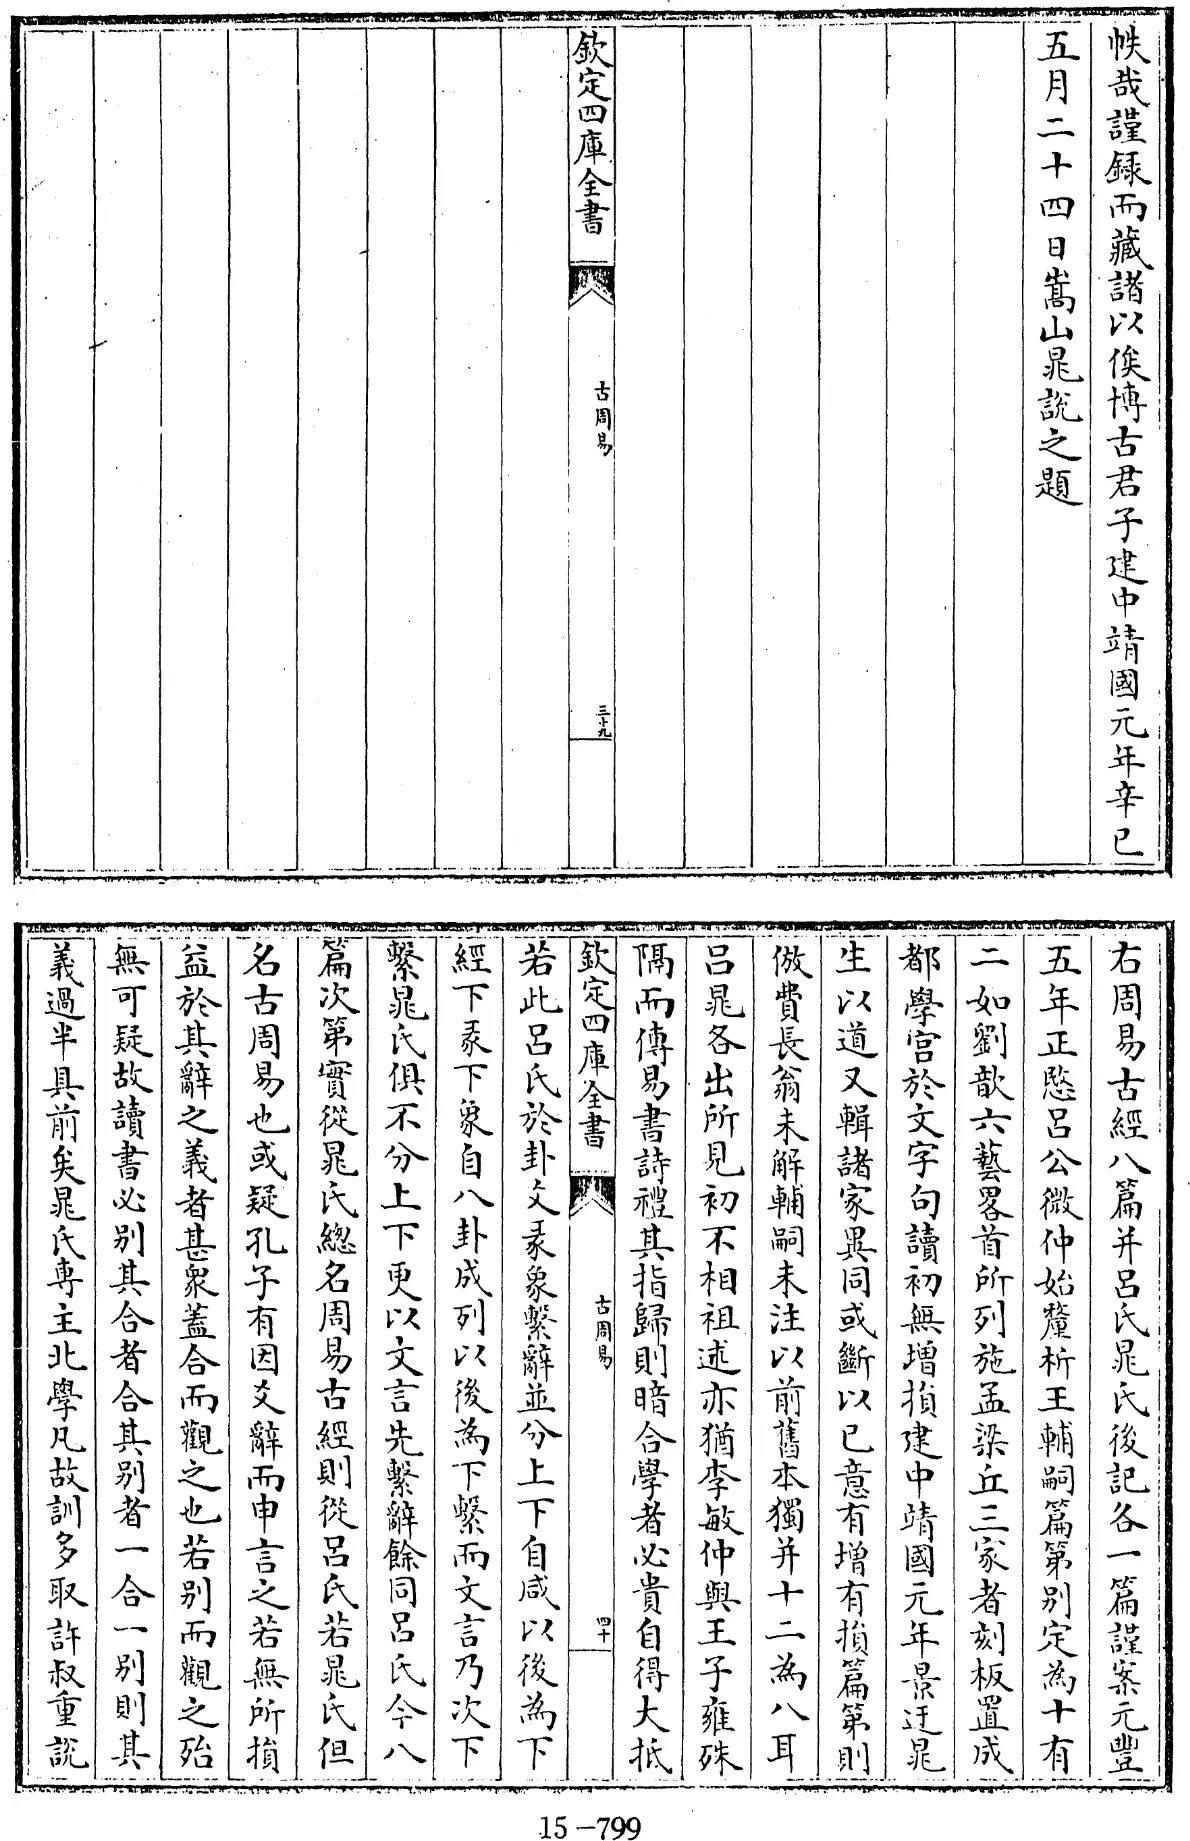 帙哉謹録而藏諸以俟博古君子建中靖國元年辛巳
五月二十四日嵩山晁説之題
欽定四庫全書
古周易
三十九
右周易古經八篇并吕氏晁氏後記各一篇謹案元豐
五年正愍吕公微仲始釐析王輔嗣篇第别定為十有
二如劉歆六藝畧首所列施孟梁丘三家者刻板置成
都學宫於文字句讀初無增損建中靖國元年景迂晁
生以道又輯諸家異同或斷以已意有增有損篇第則
倣費長翁未解輔嗣未注以前舊本獨并十二為八耳
吕晁各出所見初不相祖述亦猶李敏仲與王子雍殊
隔而傳易書詩禮其指歸則暗合學者必貴自得大抵
欽定四庫全書
古周易
四十
若此吕氏於卦爻彖象繫辭並分上下自咸以後為下
經下彖下象自八卦成列以後為下繫而文言乃次下
繫晁氏俱不分上下更以文言先繫辭餘同吕氏今八
篇次第實從晁氏總名周易古經則從吕氏若晁氏但
名古周易也或疑孔子有因爻辭而申言之若無所損
益於其辭之義者甚衆蓋合而觀之也若别而觀之殆
無可疑故讀書必别其合者合其别者一合一别則其
義過半具前矣晁氏専主北學凡故訓多取許叔重説
15-799